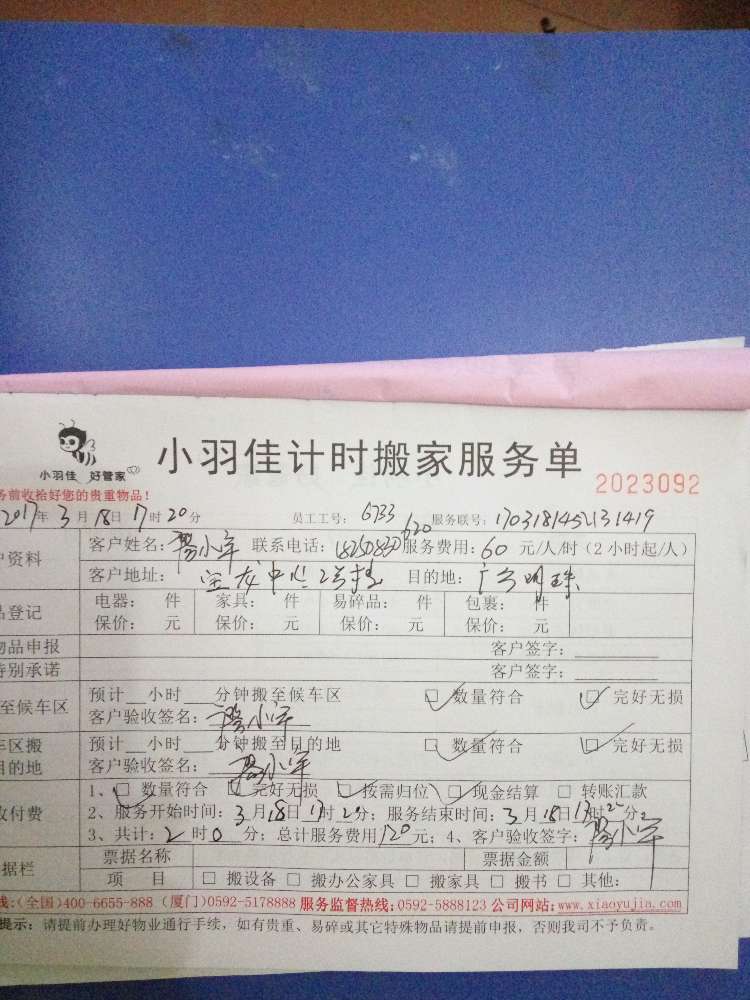 小羽佳 好管家
小羽佳计时搬家服务单
2023092
务前收拾好您的贵重物品！
2017年 3月 18日 17时 20分 员工工号： 6733 服务联号：
户资料 客户姓名： 小军 联系电话： 服务费用：60 元/人/时（2小时起/人）
客户地址：宝龙中心2号楼 目的地： 明珠
品登记 电器： 件 家具： 件 易碎品： 件 包裹： 件
保价： 元 保价： 元 保价： 元 保价： 元
物品申报 客户签字：
特别承诺 客户签字：
至候车区 预计 小时 分钟搬至候车区 □数量符合 □完好无损
客户验收签名： 小军
车区搬 预计 小时 分钟搬至目的地 □数量符合 □完好无损
目的地 客户验收签名： 小军
1、□数量符合 □完好无损 □按需归位 □现金结算 □转账汇款
收付费 2、服务开始时间：3月18日 时 分；服务结束时间：3月18日 时 分。
3、共计：2时0分；总计服务费用120元；4、客户验收签字： 小军
据栏 票据名称 票据金额
项 目 □搬设备 □搬办公家具 □搬家具 □搬书 □其他：
线:(全国)400-6655-888 (厦门)0592-5178888 服务监督热线:0592-5888123 公司网站:www.xiaoyujia.com
提示：请提前办理好物业通行手续，如有贵重、易碎或其它特殊物品请提前申报，否则我司不予负责。